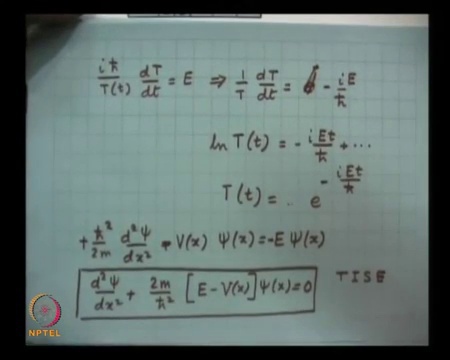 iħ/T(t) dT/dt = E ⇒ 1/T dT/dt = - iE/ħ
ln T(t) = - iEt/ħ + ...
T(t) = .. e^(- iEt/ħ)
+ ħ²/2m d²Ψ/dx² - V(x) Ψ(x) = -E Ψ(x)
d²Ψ/dx² + 2m/ħ² [E - V(x)] Ψ(x) = 0 TISE
NPTEL